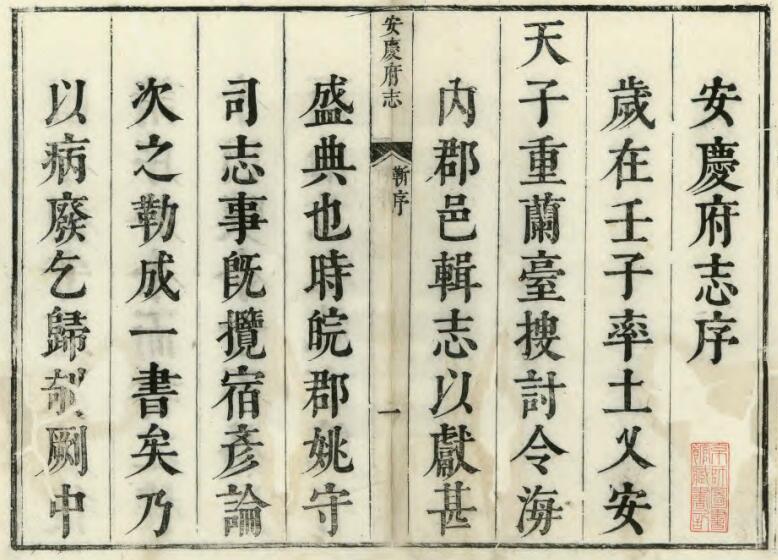 安慶府志序
歲在壬子率土乂安
天子重蘭臺搜討令海
內郡邑輯志以獻甚
安慶府志
靳序
一
盛典也時皖郡姚守
司志事旣攬宿彥論
次之勒成一書矣乃
以病廢乞歸剞劂中